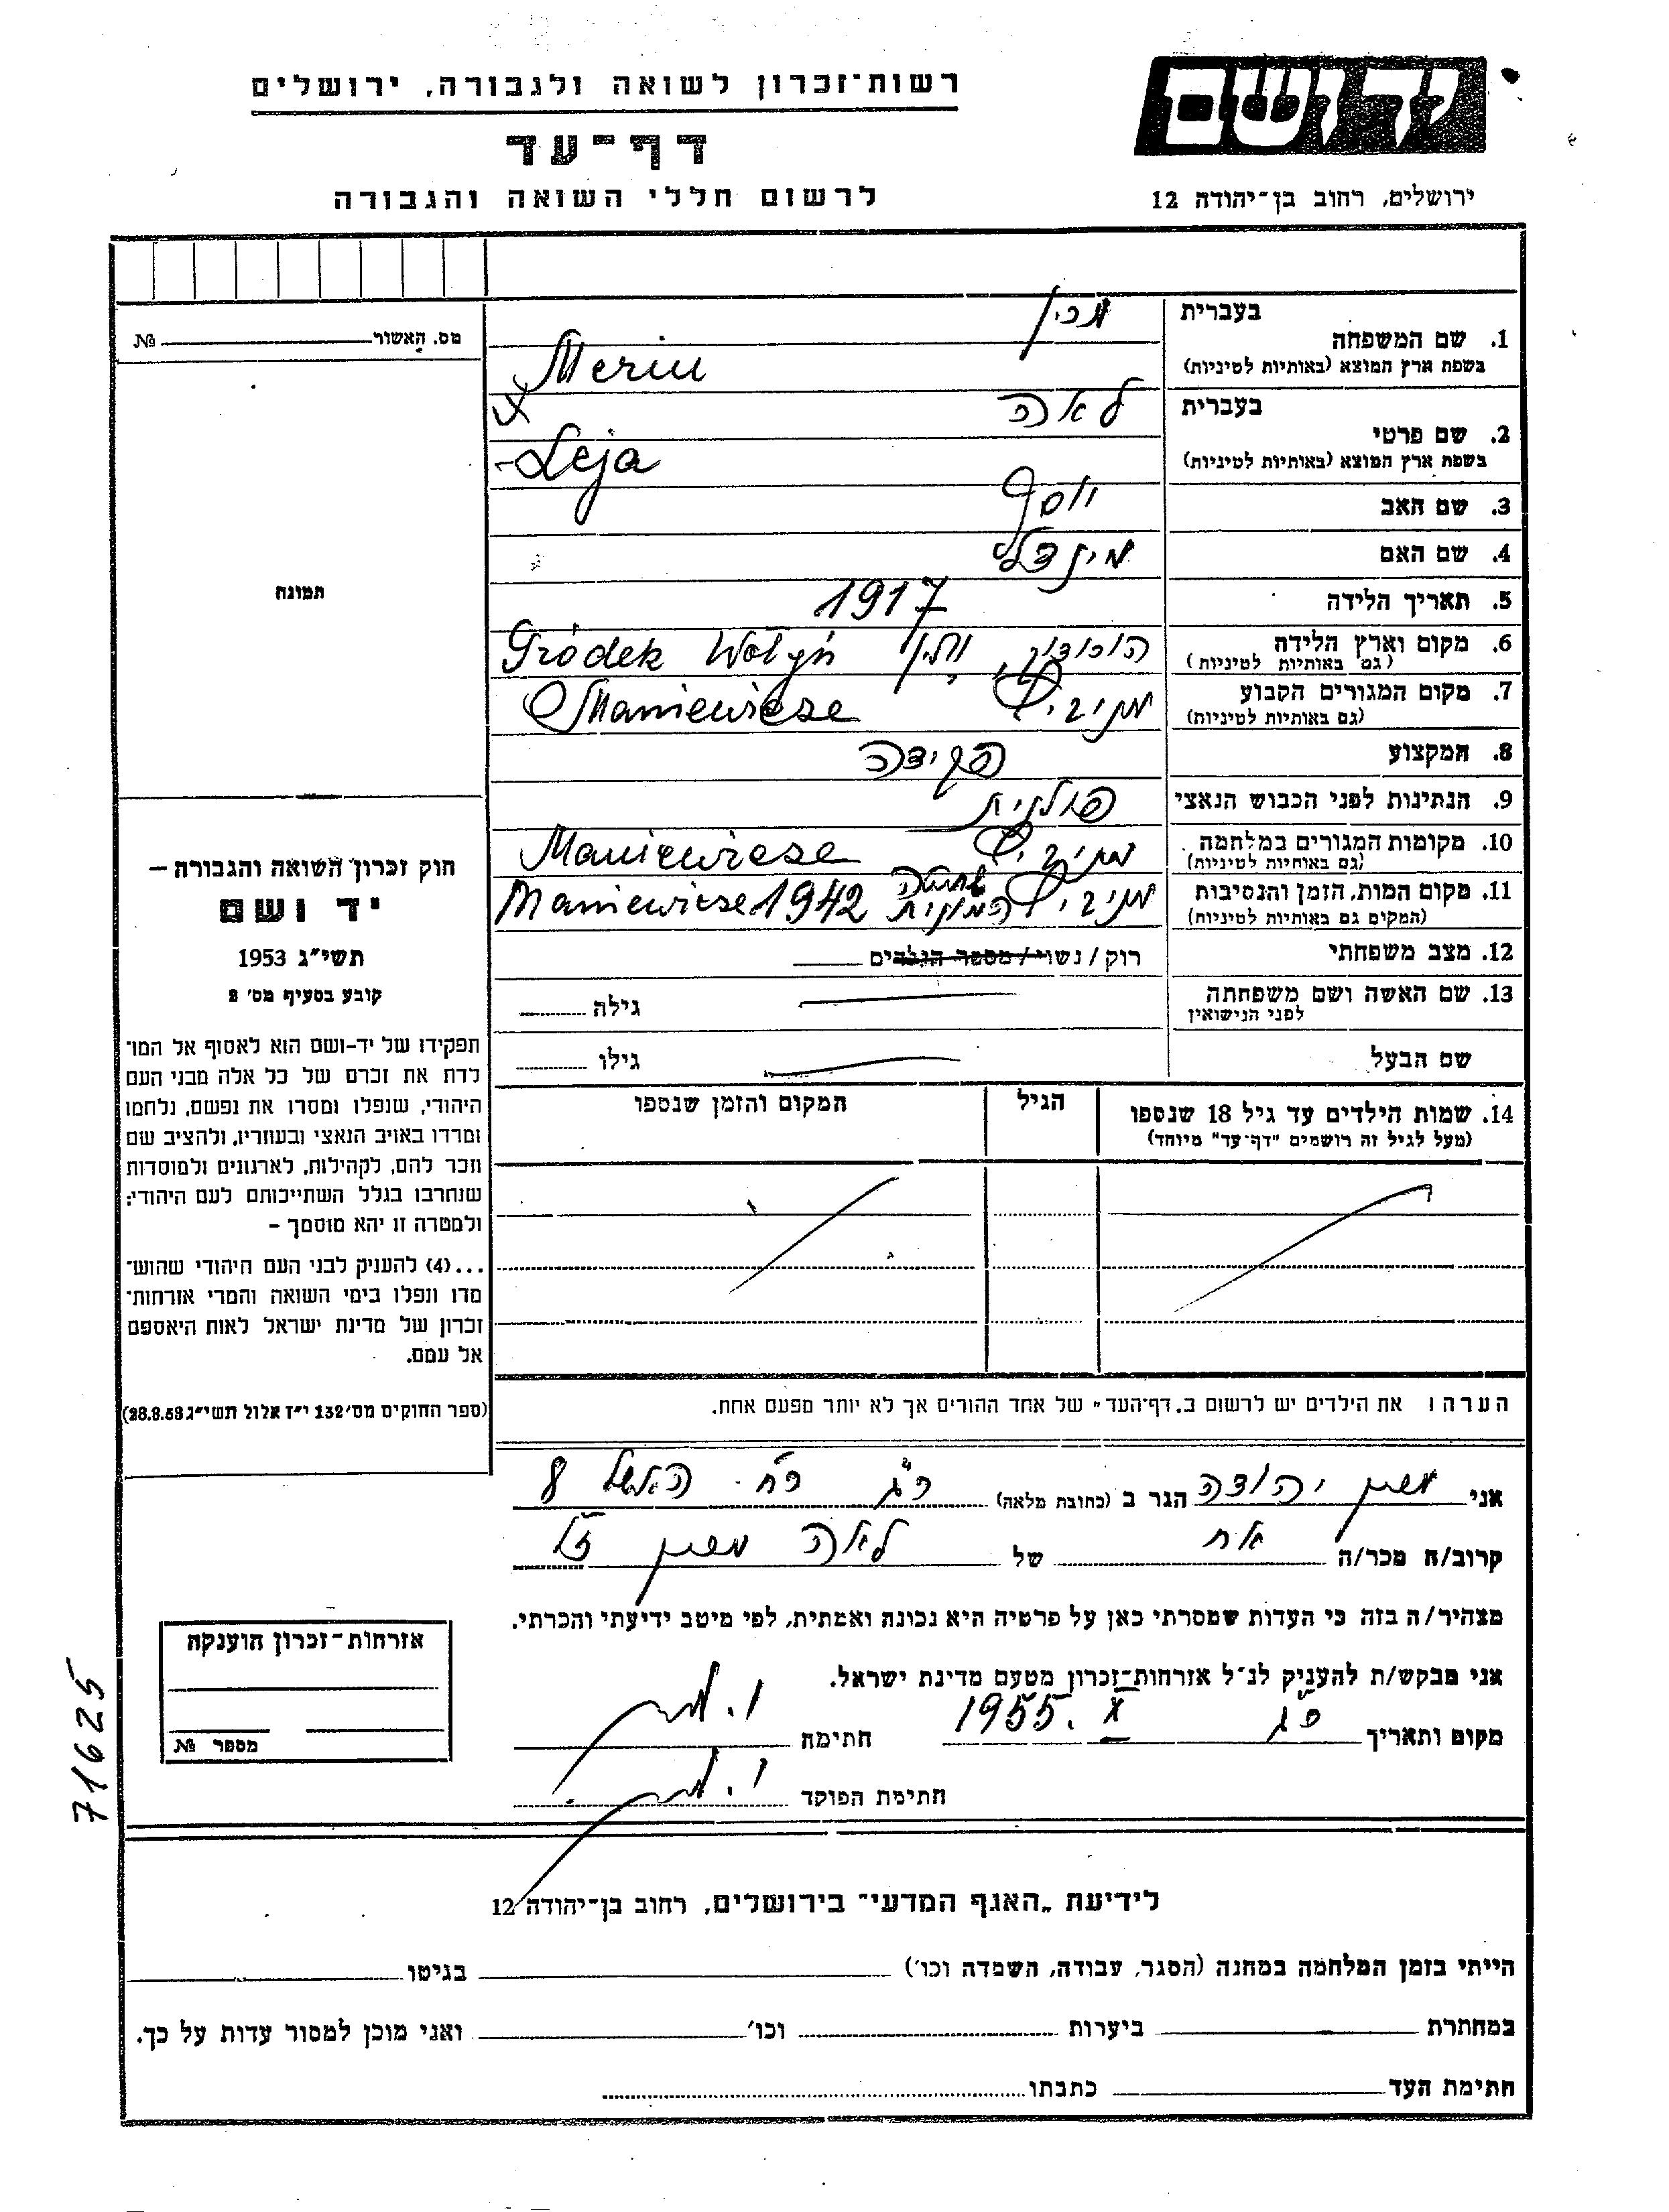 יד ושם
רשות־זכרון לשואה ולגבורה, ירושלים
דף־עד
לרשום חללי השואה והגבורה
ירושלים, רחוב בן־יהודה 12
מס. האשור № 
תמונה
1. שם המשפחה
בעברית
בשפת ארץ המוצא (באותיות לטיניות) Merin
2. שם פרטי
בעברית לאה
בשפת ארץ המוצא (באותיות לטיניות) Leja
3. שם האב יוסף
4. שם האם מינדל
5. תאריך הלידה 1917
6. מקום וארץ הלידה הורודוק, ווולין Gródek Wołyń
(גם באותיות לטיניות)
7. מקום המגורים הקבוע מניביץ Maniewicze
(גם באותיות לטיניות)
8. המקצוע פקידה
9. הנתינות לפני הכבוש הנאצי פולנית
10. מקומות המגורים במלחמה מניביץ Maniewicze
(גם באותיות לטיניות)
11. מקום המות, הזמן והנסיבות מניביץ 1942 Maniewicze
(המקום גם באותיות לטיניות)
12. מצב משפחתי רוק / נשוי / מספר הנלוים
13. שם האשה ושם משפחתה גילה
לפני הנישואין
שם הבעל גילו
14. שמות הילדים עד גיל 18 שנספו הגיל המקום והזמן שנספו
(מעל לגיל זה רושמים "דף־עד" מיוחד)
הערה: את הילדים יש לרשום ב„דף־העד" של אחד ההורים אך לא יותר מפעם אחת.
חוק זכרון השואה והגבורה –
יד ושם
תשי"ג 1953
קובע בסעיף מס׳ 2
תפקידו של יד-ושם הוא לאסוף אל המו־
לדת את זכרם של כל אלה מבני העם
היהודי, שנפלו ומסרו את נפשם, נלחמו
ומרדו באויב הנאצי ובעוזריו, ולהציב שם
וזכר להם, לקהילות, לארגונים ולמוסדות
שנחרבו בגלל השתייכותם לעם היהודי;
ולמטרה זו יהא מוסמך –
...(4) להעניק לבני העם היהודי שהוש־
מדו ונפלו בימי השואה והמרי אזרחות־
זכרון של מדינת ישראל לאות היאספם
אל עמם.
(ספר החוקים מס׳ 132 י"ז אלול תשי"ג 28.8.53)
אני יהודה הגר ב (כתובת מלאה) ר"ג רח׳ 8
קרוב/ה מכר/ה אח של לאה ז"ל
מצהיר/ה בזה כי העדות שמסרתי כאן על פרטיה היא נכונה ואמתית, לפי מיטב ידיעתי והכרתי.
אני מבקש/ת להעניק לנ״ל אזרחות־זכרון מטעם מדינת ישראל.
מקום ותאריך ר"ג X. 1955 חתימה
חתימת הפוקד
אזרחות־זכרון הוענקה
מספר №
71625
לידיעת „האגף המדעי" בירושלים, רחוב בן־יהודה 12
הייתי בזמן המלחמה במחנה (הסגר, עבודה, השמדה וכו׳) בגיטו
במחתרת ביערות וכו׳ ואני מוכן למסור עדות על כך.
חתימת העד כתבתו